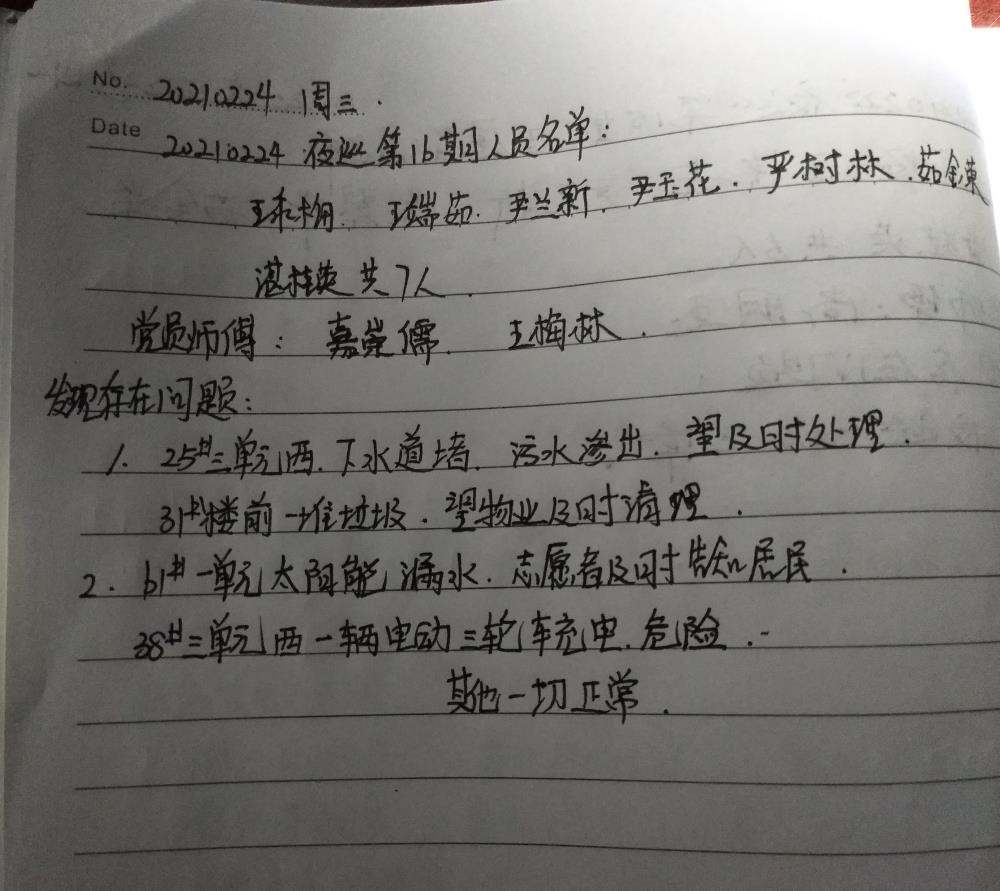 No. 20210224 周三.
Date 20210224 夜巡第16期人员名单:
王端茹. 尹兰新. 尹玉花. 尹树林. 茹金东
湛桂英 共7人.
党员师傅: 嘉崇儒. 王梅林.
发现存在问题:
1. 25#三单元西.下水道堵.污水渗出.望及时处理.
31#楼前一堆垃圾.望物业及时清理.
2. 61#一单元太阳能漏水.志愿者及时告知居民.
38#三单元西一辆电动三轮车充电.危险.
其他一切正常.